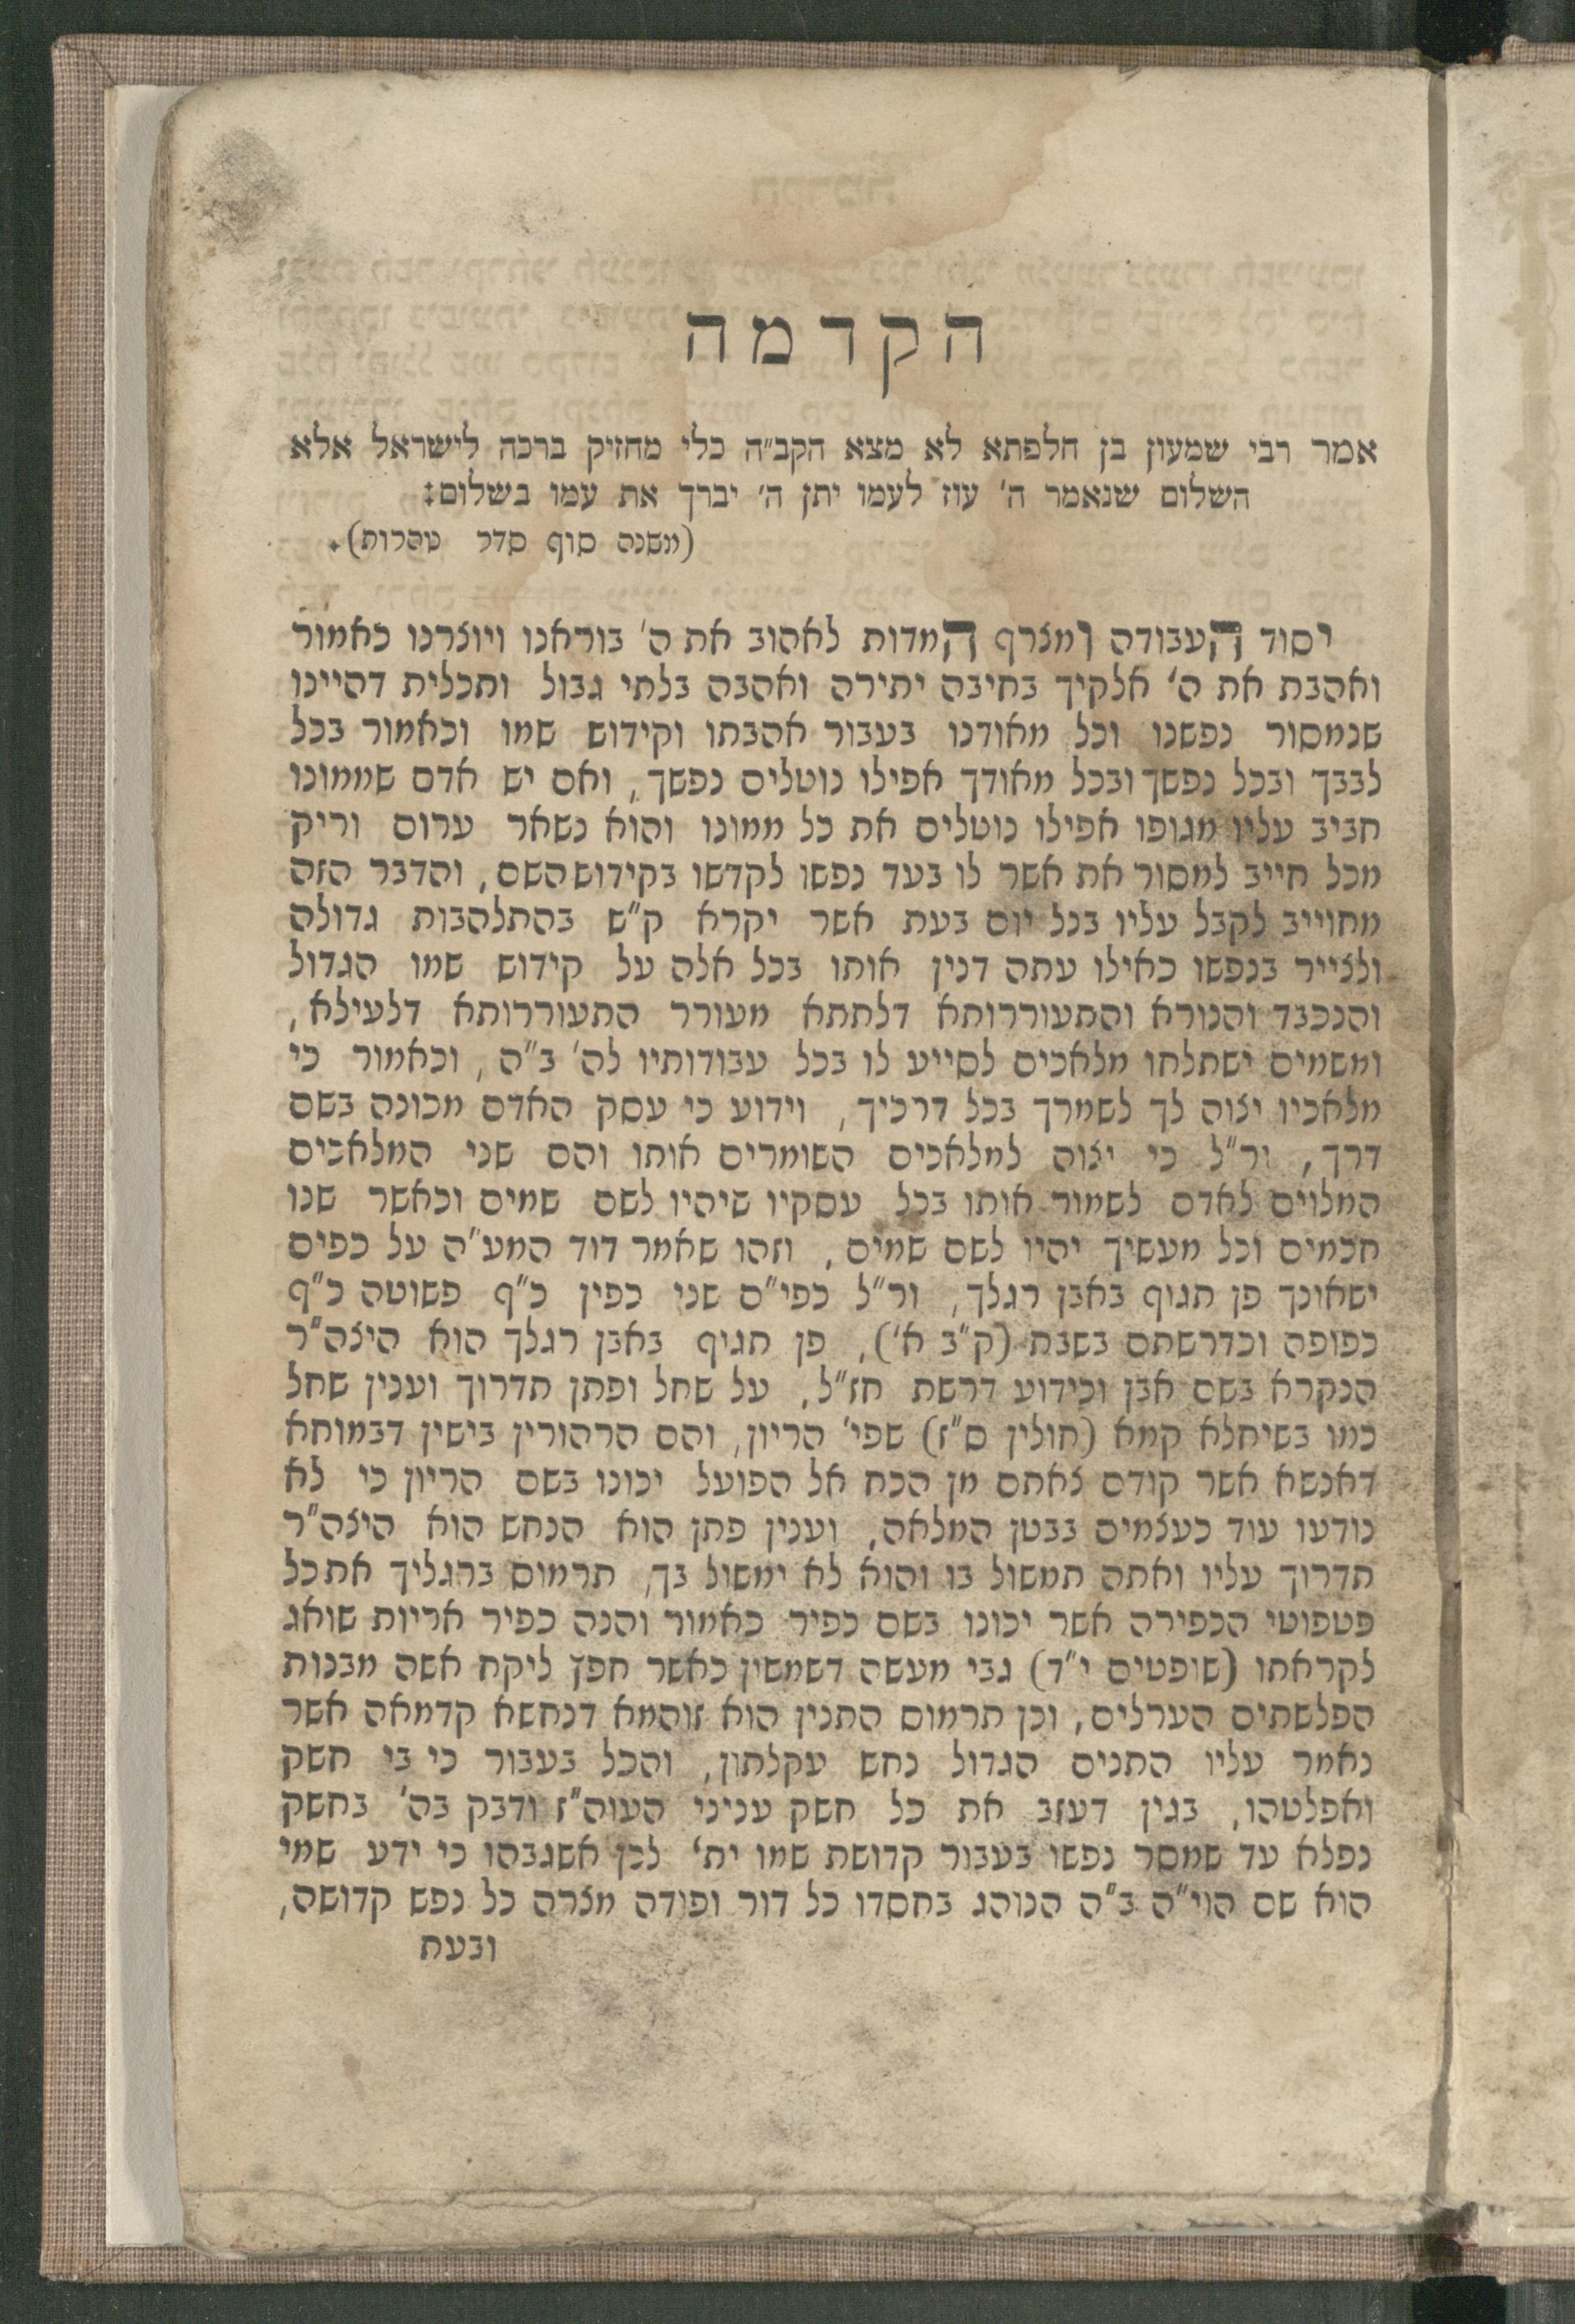 הקדמה
אמר רבי שמעון בן חלפתא לא מצא הקב"ה כלי מחזיק ברכה לישראל אלא
השלום שנאמר ה' עוז לעמו יתן ה' יברך את עמו בשלום:
(משנה סוף סדר טהרות).
יסוד העבודה ומצרף המדות לאהוב את ה' בוראנו ויוצרנו כאמור
ואהבת את ה' אלקיך בחיבה יתירה ואהבה בלתי גבול ותכלית דהיינו
שנמסור נפשנו וכל מאודנו בעבור אהבתו וקידוש שמו וכאמור בכל
לבבך ובכל נפשך ובכל מאודך אפילו נוטלים נפשך, ואם יש אדם שממונו
חביב עליו מגופו אפילו נוטלים את כל ממונו והוא נשאר ערום וריק
מכל חייב למסור את אשר לו בעד נפשו לקדשו בקידוש השם, והדבר הזה
מחוייב לקבל עליו בכל יום בעת אשר יקרא ק"ש בהתלהבות גדולה
ולצייר בנפשו כאילו עתה דנין אותו בכל אלה על קידוש שמו הגדול
והנכבד והנורא והתעוררותא דלתתא מעורר התעוררותא דלעילא,
ומשמים ישתלחו מלאכים לסייע לו בכל עבודותיו לה' ב"ה, וכאמור כי
מלאכיו יצוה לך לשמרך בכל דרכיך, וידוע כי עסק האדם מכונה בשם
דרך, ור"ל כי יצוה למלאכים השומרים אותו והם שני המלאכים
המלוים לאדם לשמור אותו בכל עסקיו שיהיו לשם שמים וכאשר שנו
חכמים וכל מעשיך יהיו לשם שמים, וזהו שאמר דוד המע"ה על כפים
ישאונך פן תגוף באבן רגלך, ור"ל כפי"ם שני כפין כ"ף פשוטה כ"ף
כפופה וכדרשתם בשבת (ק"ב א'), פן תגוף באבן רגלך הוא היצה"ר
הנקרא בשם אבן וכידוע דרשת חז"ל, על שחל ופתן תדרוך וענין שחל
כמו בשיחלא קמא (חולין ס"ז) שפי' הריון, והם הרהורין בישין דבמוחא
דאנשא אשר קודם צאתם מן הכח אל הפועל יכונו בשם הריון כי לא
נודעו עוד כעצמים בבטן המלאה, וענין פתן הוא הנחש הוא היצה"ר
תדרוך עליו ואתה תמשול בו והוא לא ימשול בך, תרמוס ברגליך את כל
פטפוטי הכפירה אשר יכונו בשם כפיר כאמור והנה כפיר אריות שואג
לקראתו (שופטים י"ד) גבי מעשה דשמשון כאשר חפץ ליקח אשה מבנות
הפלשתים הערלים, וכן תרמוס התנין הוא זוהמא דנחשא קדמאה אשר
נאמר עליו התנים הגדול נחש עקלתון, והכל בעבור כי בי חשק
ואפלטהו, בגין דעזב את כל חשק עניני העוה"ז ודבק בה' בחשק
נפלא עד שמסר נפשו בעבור קדושת שמו ית' לכן אשגבהו כי ידע שמי
הוא שם הוי"ה ב"ה הנוהג בחסדו כל דור ופודה מצרה כל נפש קדושה,
ובעת